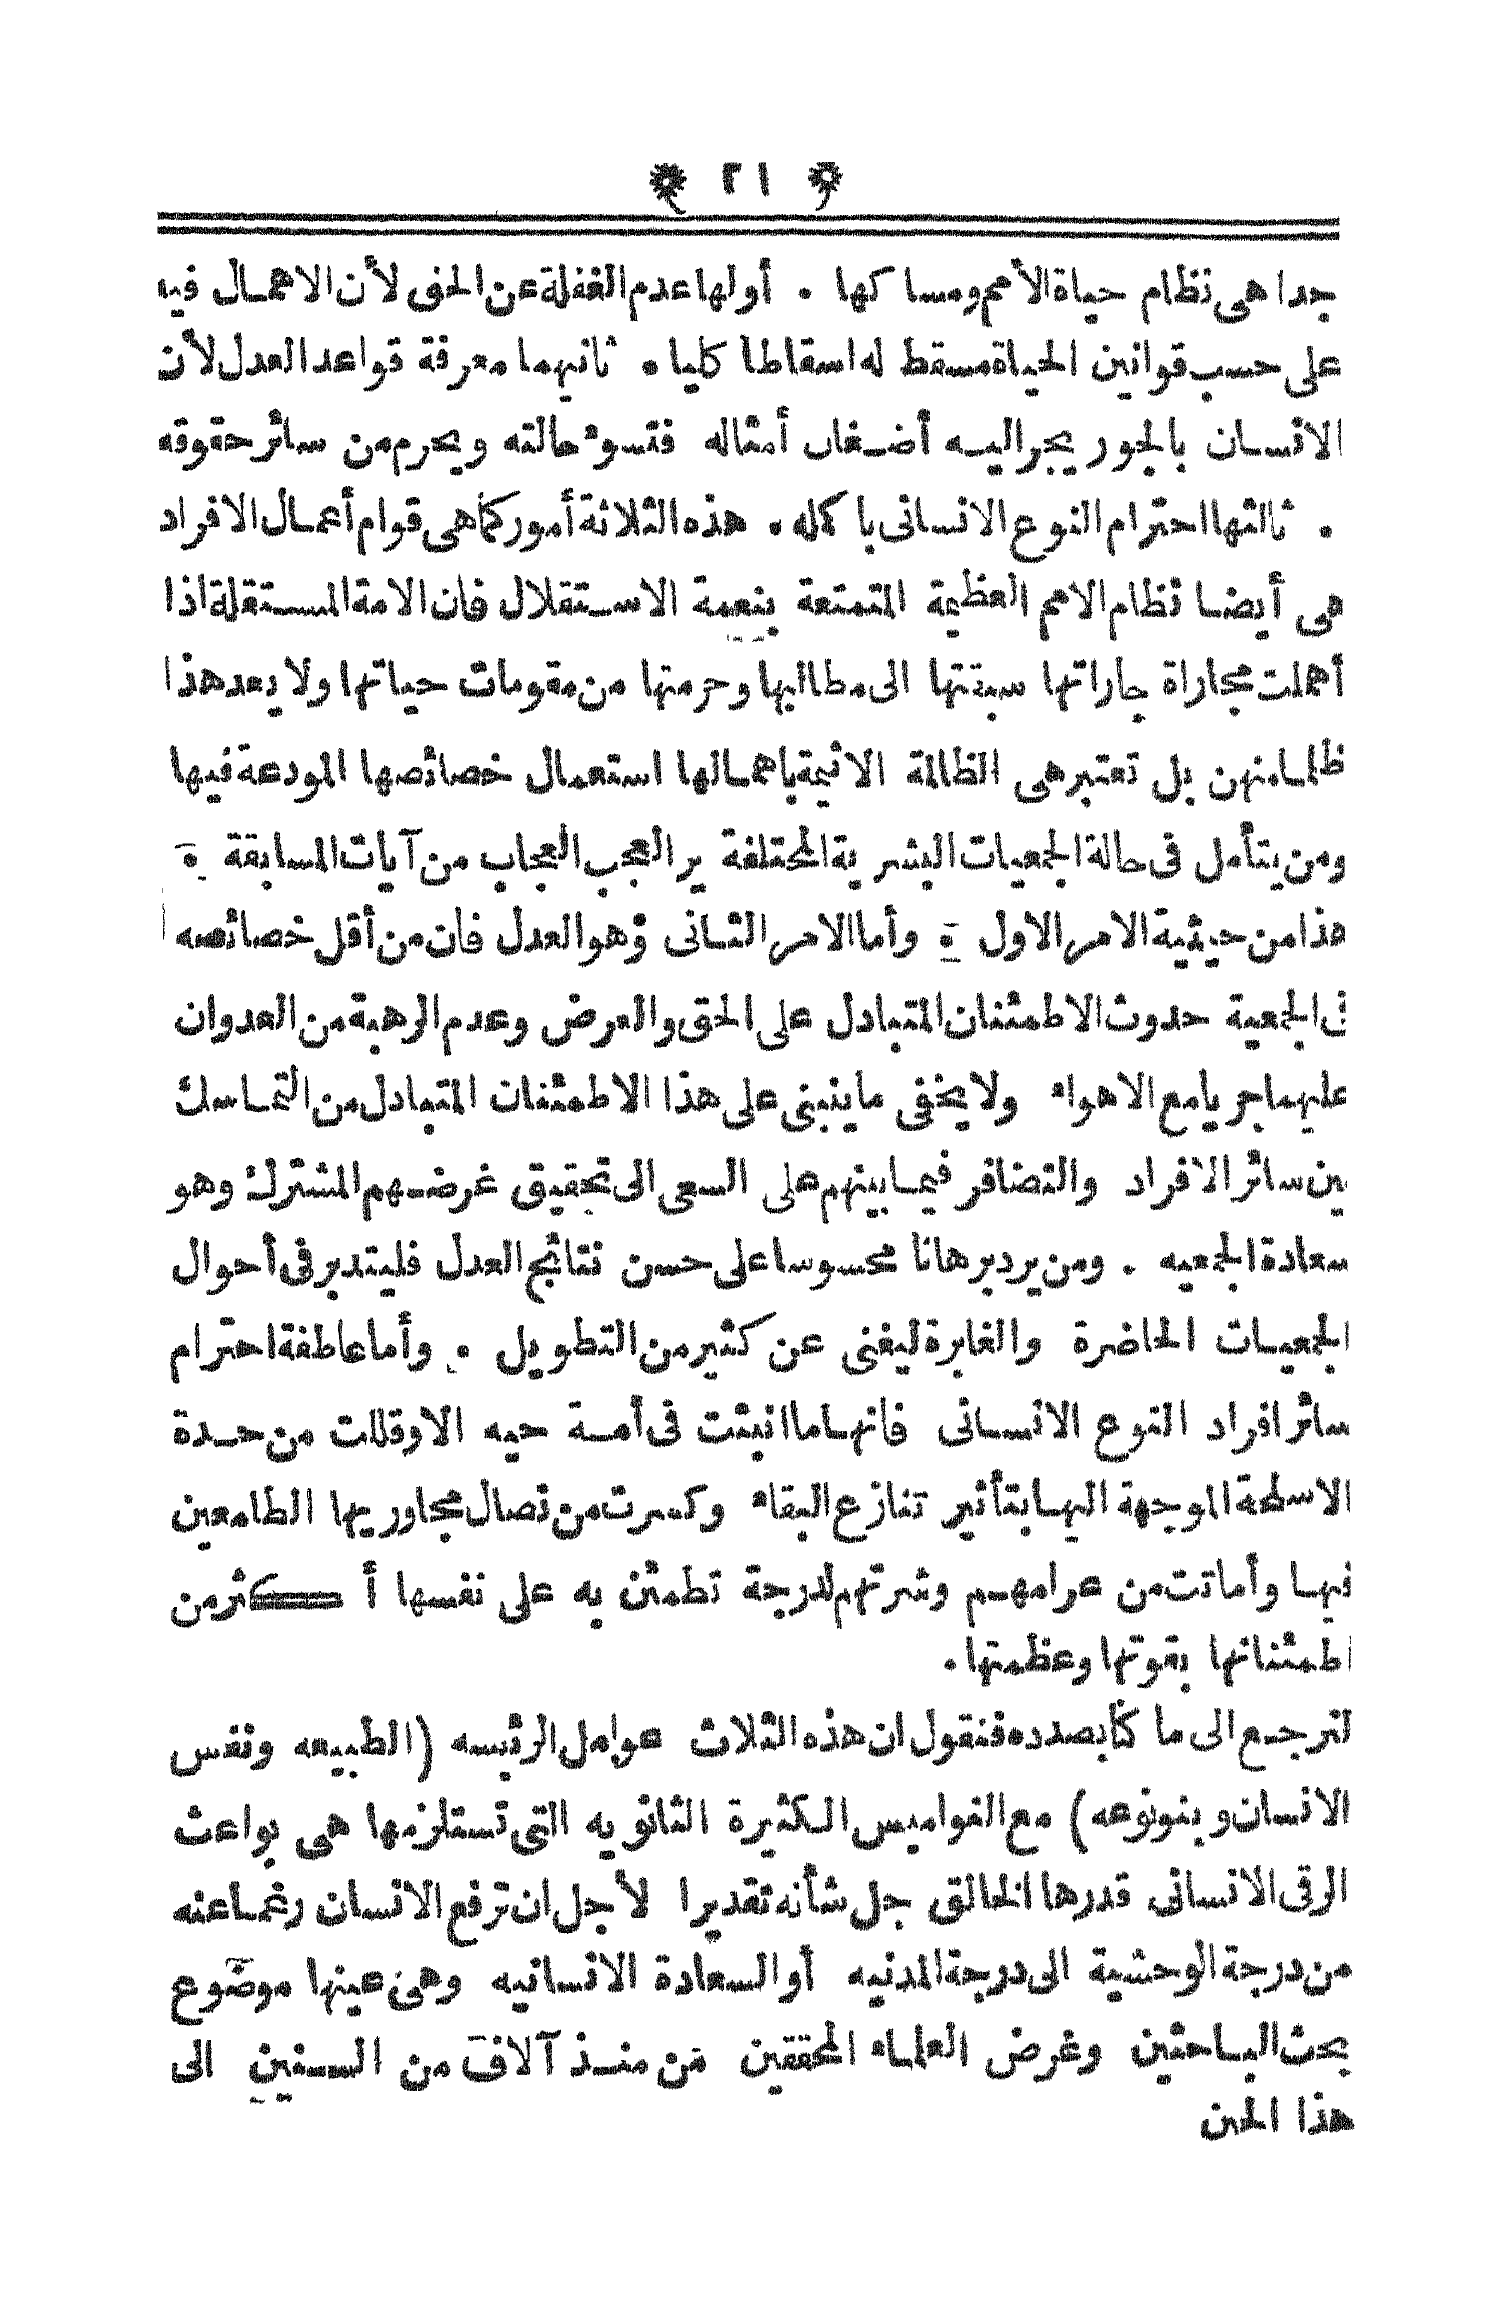 ٢١
جدا هى نظام حياة الأمم ومسا كها . أولها عدم الغفلة عن الحق لأن الاهمال فيه
على حسب قوانين الحياة مسقط له اسقاطا كليا . ثانيهما معرفة قواعد العدل لأن
الانسان بالجور يجر اليه أضعاف أمثاله فتسوء حالته ويحرم من سائر حقوقه
. ثالثها احترام النوع الانسانى بأ كمله . هذه الثلاثة أمور كما هى قوام أعمال الافراد
هى أيضا نظام الامم العظيمة المتمتعة بنعمة الاستقلال فان الامة المستقلة اذا
أهملت مجاراة جاراتها سبتها الى مطالبها وحرمتها من مقومات حياتها ولا يعد هذا
ظلما منهن بل تعتبر هى الظالمة الاثيمة باهمالها استعمال خصائصها المودعة فيها
ومن يتأمل فى حالة الجمعيات البشرية المختلفة ير العجب العجاب من آيات المسابقة .
هذا من حيثية الامر الاول . وأما الامر الثانى وهو العدل فان من أقل خصائصه
فى الجمعية حدوث الاطمئنان المتبادل على الحق والعرض وعدم الرهبة من العدوان
عليهما جريا مع الاهواء ولا يخفى ما ينبنى على هذا الاطمئنان المتبادل من التماسك
بين سائر الافراد والتضافر فيما بينهم على السعى الى تحقيق غرضهم المشترك وهو
سعادة الجمعيه . ومن يرد برهانا محسوسا على حسن نتائج العدل فليتدبر فى أحوال
الجمعيات الحاضرة والغابرة ليغنى عن كثير من التطويل . وأما عاطفة احترام
سائر افراد النوع الانسانى فانها ما انبثت فى أمة حيه الا وقللت من حدة
الاسلحة الموجهة اليها بتأثير تنازع البقاء وكسرت من نصال مجاوريها الطامعين
فيها وأماتت من عرامهم وشرتهم لدرجة تطمئن به على نفسها أكثر من
اطمئنانها بقوتها وعظمتها .
لنرجع الى ما كنا بصدده فنقول ان هذه الثلاث عوامل الرئيسه (الطبيعه ونفس
الانسان وبنونوعه) مع النواميس الكثيرة الثانويه التى تستلزمها هى بواعث
الرقى الانسانى قدرها الخالق جل شأنه تقديرا لأجل ان ترفع الانسان رغما عنه
من درجة الوحشية الى درجة المدنيه أو السعادة الانسانيه وهى عينها موضوع
بحث الباحثين وغرض العلماء المحققين من منذ آلاف من السنين الى
هذا الحين